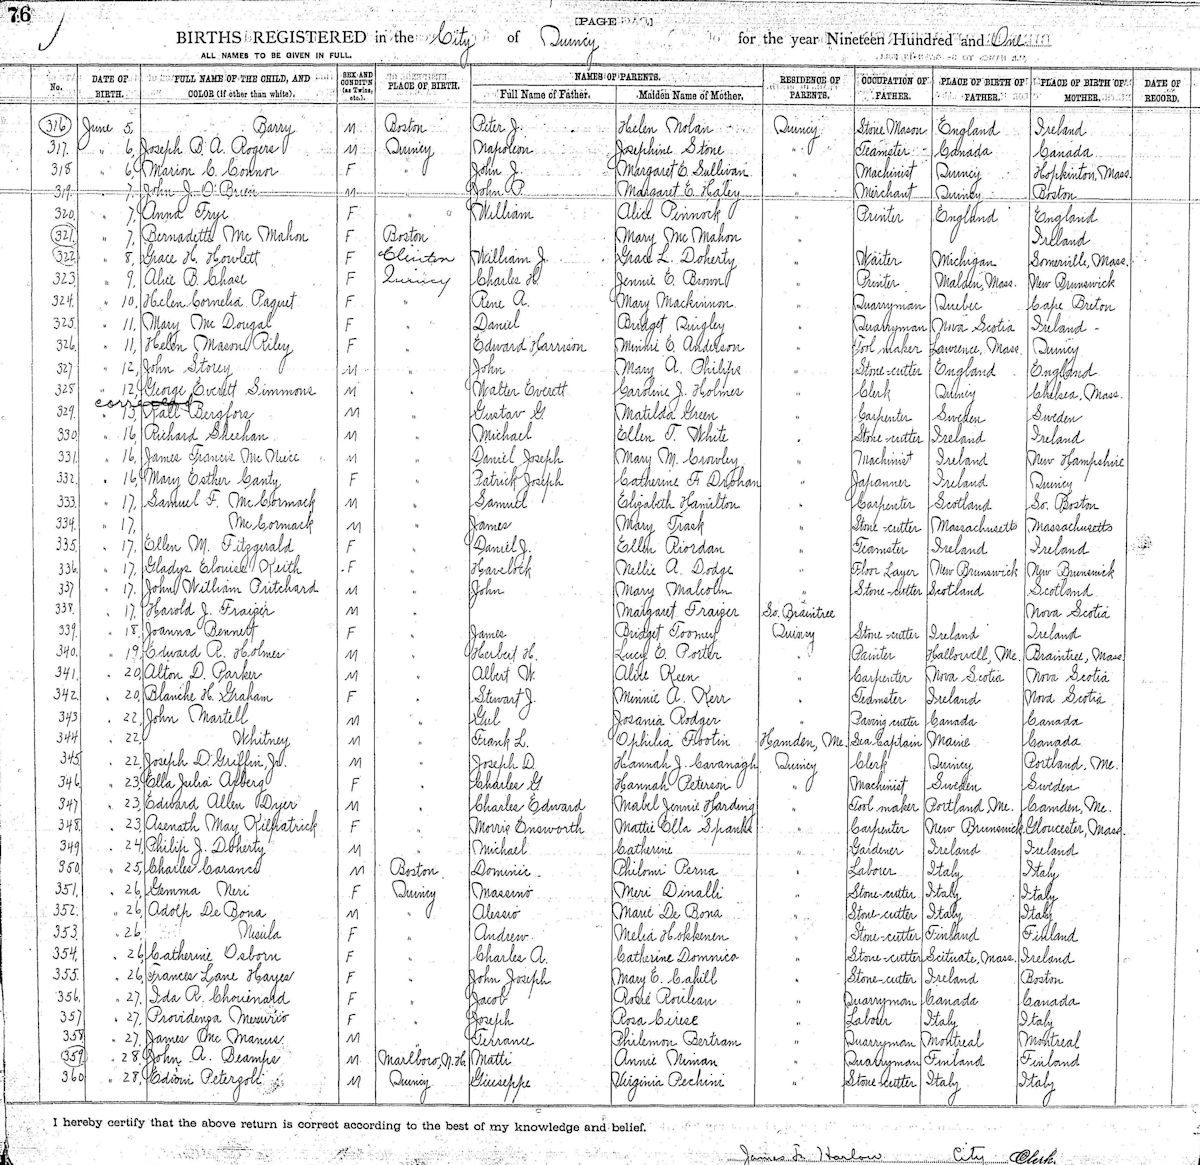 76
[PAGE]
BIRTHS REGISTERED in the City of Quincy for the year Nineteen Hundred and One
ALL NAMES TO BE GIVEN IN FULL.
No. DATE OF BIRTH. FULL NAME OF THE CHILD, AND COLOR (if other than white). SEX AND CONDIT'N (as Twins, etc.) PLACE OF BIRTH. NAMES OF PARENTS. Full Name of Father. Maiden Name of Mother. RESIDENCE OF PARENTS. OCCUPATION OF FATHER. PLACE OF BIRTH OF FATHER. PLACE OF BIRTH OF MOTHER. DATE OF RECORD.
316 June 5, Barry M Boston Peter J. Helen Nolan Quincy Stone Mason England Ireland
317. " 6, Joseph B. A. Rogers M Quincy Napoleon Josephine Stone " Teamster Canada Canada
318 " 6, Marion C. Connor F " John J. Margaret E. Sullivan " Machinist Quincy Hopkinton, Mass.
319. " 7, John J. O'Brien M " John P. Margaret E. Haley " Merchant Quincy Boston
320. " 7, Anna Frye F " William Alice Pinnock " Printer England England
321. " 7, Bernadette Mc Mahon F Boston Mary Mc Mahon " Ireland
322 " 8, Grace H. Howlett F Clinton William J. Grace L. Doherty " Waiter Michigan Somerville, Mass.
323 " 9, Alice B. Chase F Quincy Charles H. Jennie E. Brown " Printer Malden, Mass. New Brunswick
324. " 10, Helen Cornelia Paquet F " Rene A. Mary Mackinnon " Quarryman Quebec Cape Breton
325. " 11, Mary Mc Dougal F " Daniel Bridget Quigley " Quarryman Nova Scotia Ireland
326. " 11, Helen Mason Riley F " Edward Harrison Minnie E. Anderson " Tool maker Lawrence, Mass. Quincy
327 " 12, John Storey M " John Mary A. Philips " Stone-cutter England England
328 " 12, George Everett Simmons M " Walter Everett Caroline J. Holmes " Clerk Quincy Chelsea, Mass.
corrected
329. 13, Karl Bergfors M " Gustav G Matilda Green " Carpenter Sweden Sweden
330. " 16, Richard Sheehan M " Michael Ellen T. White " Stone-cutter Ireland Ireland
331. " 16, James Francis Mc Niece M " Daniel Joseph Mary M. Crowley " Machinist Ireland New Hampshire
332. " 16, Mary Esther Canty F " Patrick Joseph Catherine F. Drohan " Japanner Ireland Quincy
333. " 17, Samuel F. Mc Cormack M " Samuel Elizabeth Hamilton " Carpenter Scotland So. Boston
334. " 17, Mc Cormack M " James Mary Trask " Stone-cutter Massachusetts Massachusetts
335. " 17, Ellen M. Fitzgerald F " Daniel J. Ellen Riordan " Teamster Ireland Ireland
336. " 17, Gladys Elouise Keith F " Havelock Nellie A. Dodge " Floor Layer New Brunswick New Brunswick
337 " 17, John William Pritchard M " John Mary Malcolm " Stone-cutter Scotland Scotland
338. " 17, Harold J. Fraizer M " Margaret Fraizer So. Braintree Nova Scotia
339. " 18, Joanna Bennett F " James Bridget Toomey Quincy Stone-cutter Ireland Ireland
340. " 19, Edward A. Holmes M " Herbert H. Lucy E. Porter " Painter Hallowell, Me. Braintree, Mass.
341. " 20, Alton D. Parker M " Albert W. Alice Keen " Carpenter Nova Scotia Nova Scotia
342. " 20, Blanche H. Graham F " Stewart J. Minnie A. Kerr " Teamster Ireland Nova Scotia
343 " 22, John Martell M " Josania Rodger " Paving cutter Canada Canada
344 " 22, Whitney M " Frank L. Ophilia Hamden, Me. Sea Captain Maine Canada
345. " 22, Joseph D. Griffin, Jr. M " Joseph D. Hannah J. Cavanagh Quincy Clerk Quincy Portland, Me.
346. " 23, Ella Julia F " Charles G Hannah Peterson " Machinist Sweden Sweden
347. " 23, Edward Allen Dyer M " Charles Edward Mabel Jennie Harding " Tool maker Portland, Me. Camden, Me.
348. " 23, Asenath May Kilpatrick F " Morris Ensworth Mattie Ella Spanks " Carpenter New Brunswick Gloucester, Mass.
349 " 24, Philip J. Doherty M " Michael Catherine " Gardener Ireland Ireland
350. " 25, Charles Caranci M Boston Dominic Philomi Perna " Laborer Italy Italy
351. " 26, Gemma Neri F Quincy Massimo Meri Dinalli " Stone-cutter Italy Italy
352. " 26, Adolp De Bona M " Alessio Marie De Bona " Stone-cutter Italy Italy
353. " 26, F " Andrew Melia Hokkenen " Stone-cutter Finland Finland
354. " 26, Catherine Osborn F " Charles A. Catherine Donnica " Stone-cutter Scituate, Mass. Ireland
355. " 26, Frances Lane Hayes F " John Joseph Mary E. Cahill " Stone-cutter Ireland Boston
356. " 27, Ida R. Chouinard F " Jacob Rosie Rouleau " Quarryman Canada Canada
357 " 27, Providenga Mercurio F " Joseph Rosa Cirese " Laborer Italy Italy
358 " 27, James Mc Manus M " Terrance Philemon Bertram " Quarryman Montreal Montreal
359 " 28, John A. Deamps M Marlboro, N. H. Matti Annie Niman " Quarryman Finland Finland
360 " 28, Edioni Petergoli M Quincy Giuseppe Virginia Pechini " Stone-cutter Italy Italy
I hereby certify that the above return is correct according to the best of my knowledge and belief.
James F. Harlow City Clerk.